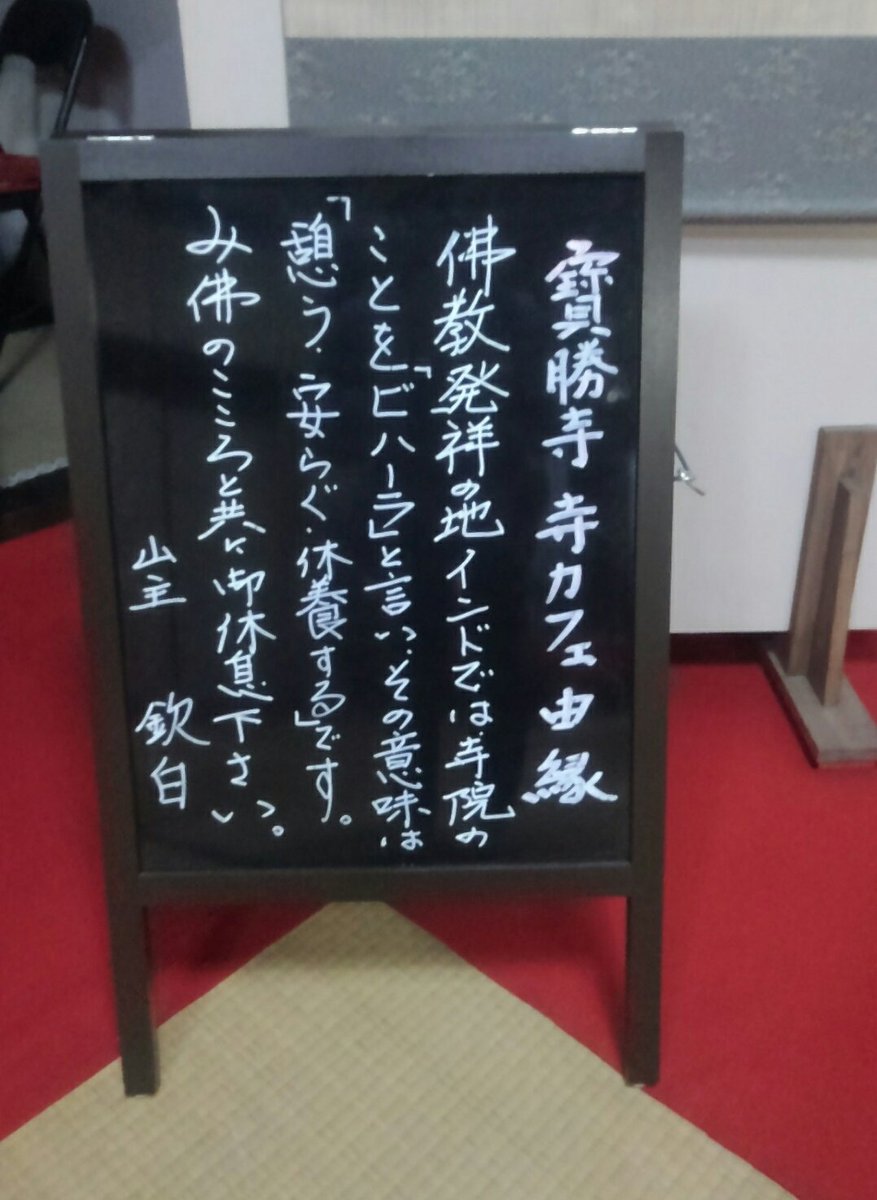 寳勝寺 寺カフェ由縁
佛教発祥の地インドでは、寺院の
ことを「ビハーラ」と言い、その意味は
「憩う・安らぐ・休養する」です。
み佛のこころと共に御休息下さい。
山主 欽白